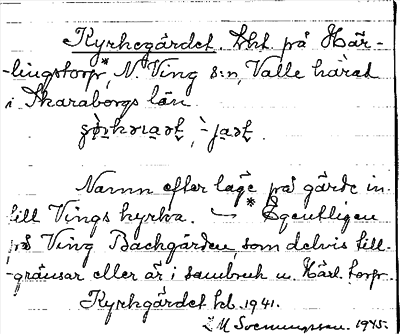 Kyrkegärdet. Lht på Härlingstorp*, N. Ving s:n, Valle härad
i Skaraborgs län.
Namn efter läge på gärde in-
till Vings kyrka. — * Egentligen
på Ving Backgården, som delvis till-
-gränsar eller är i sambruk m. Härl. torp.
Kyrkgärdet hd. 1941.
1945.